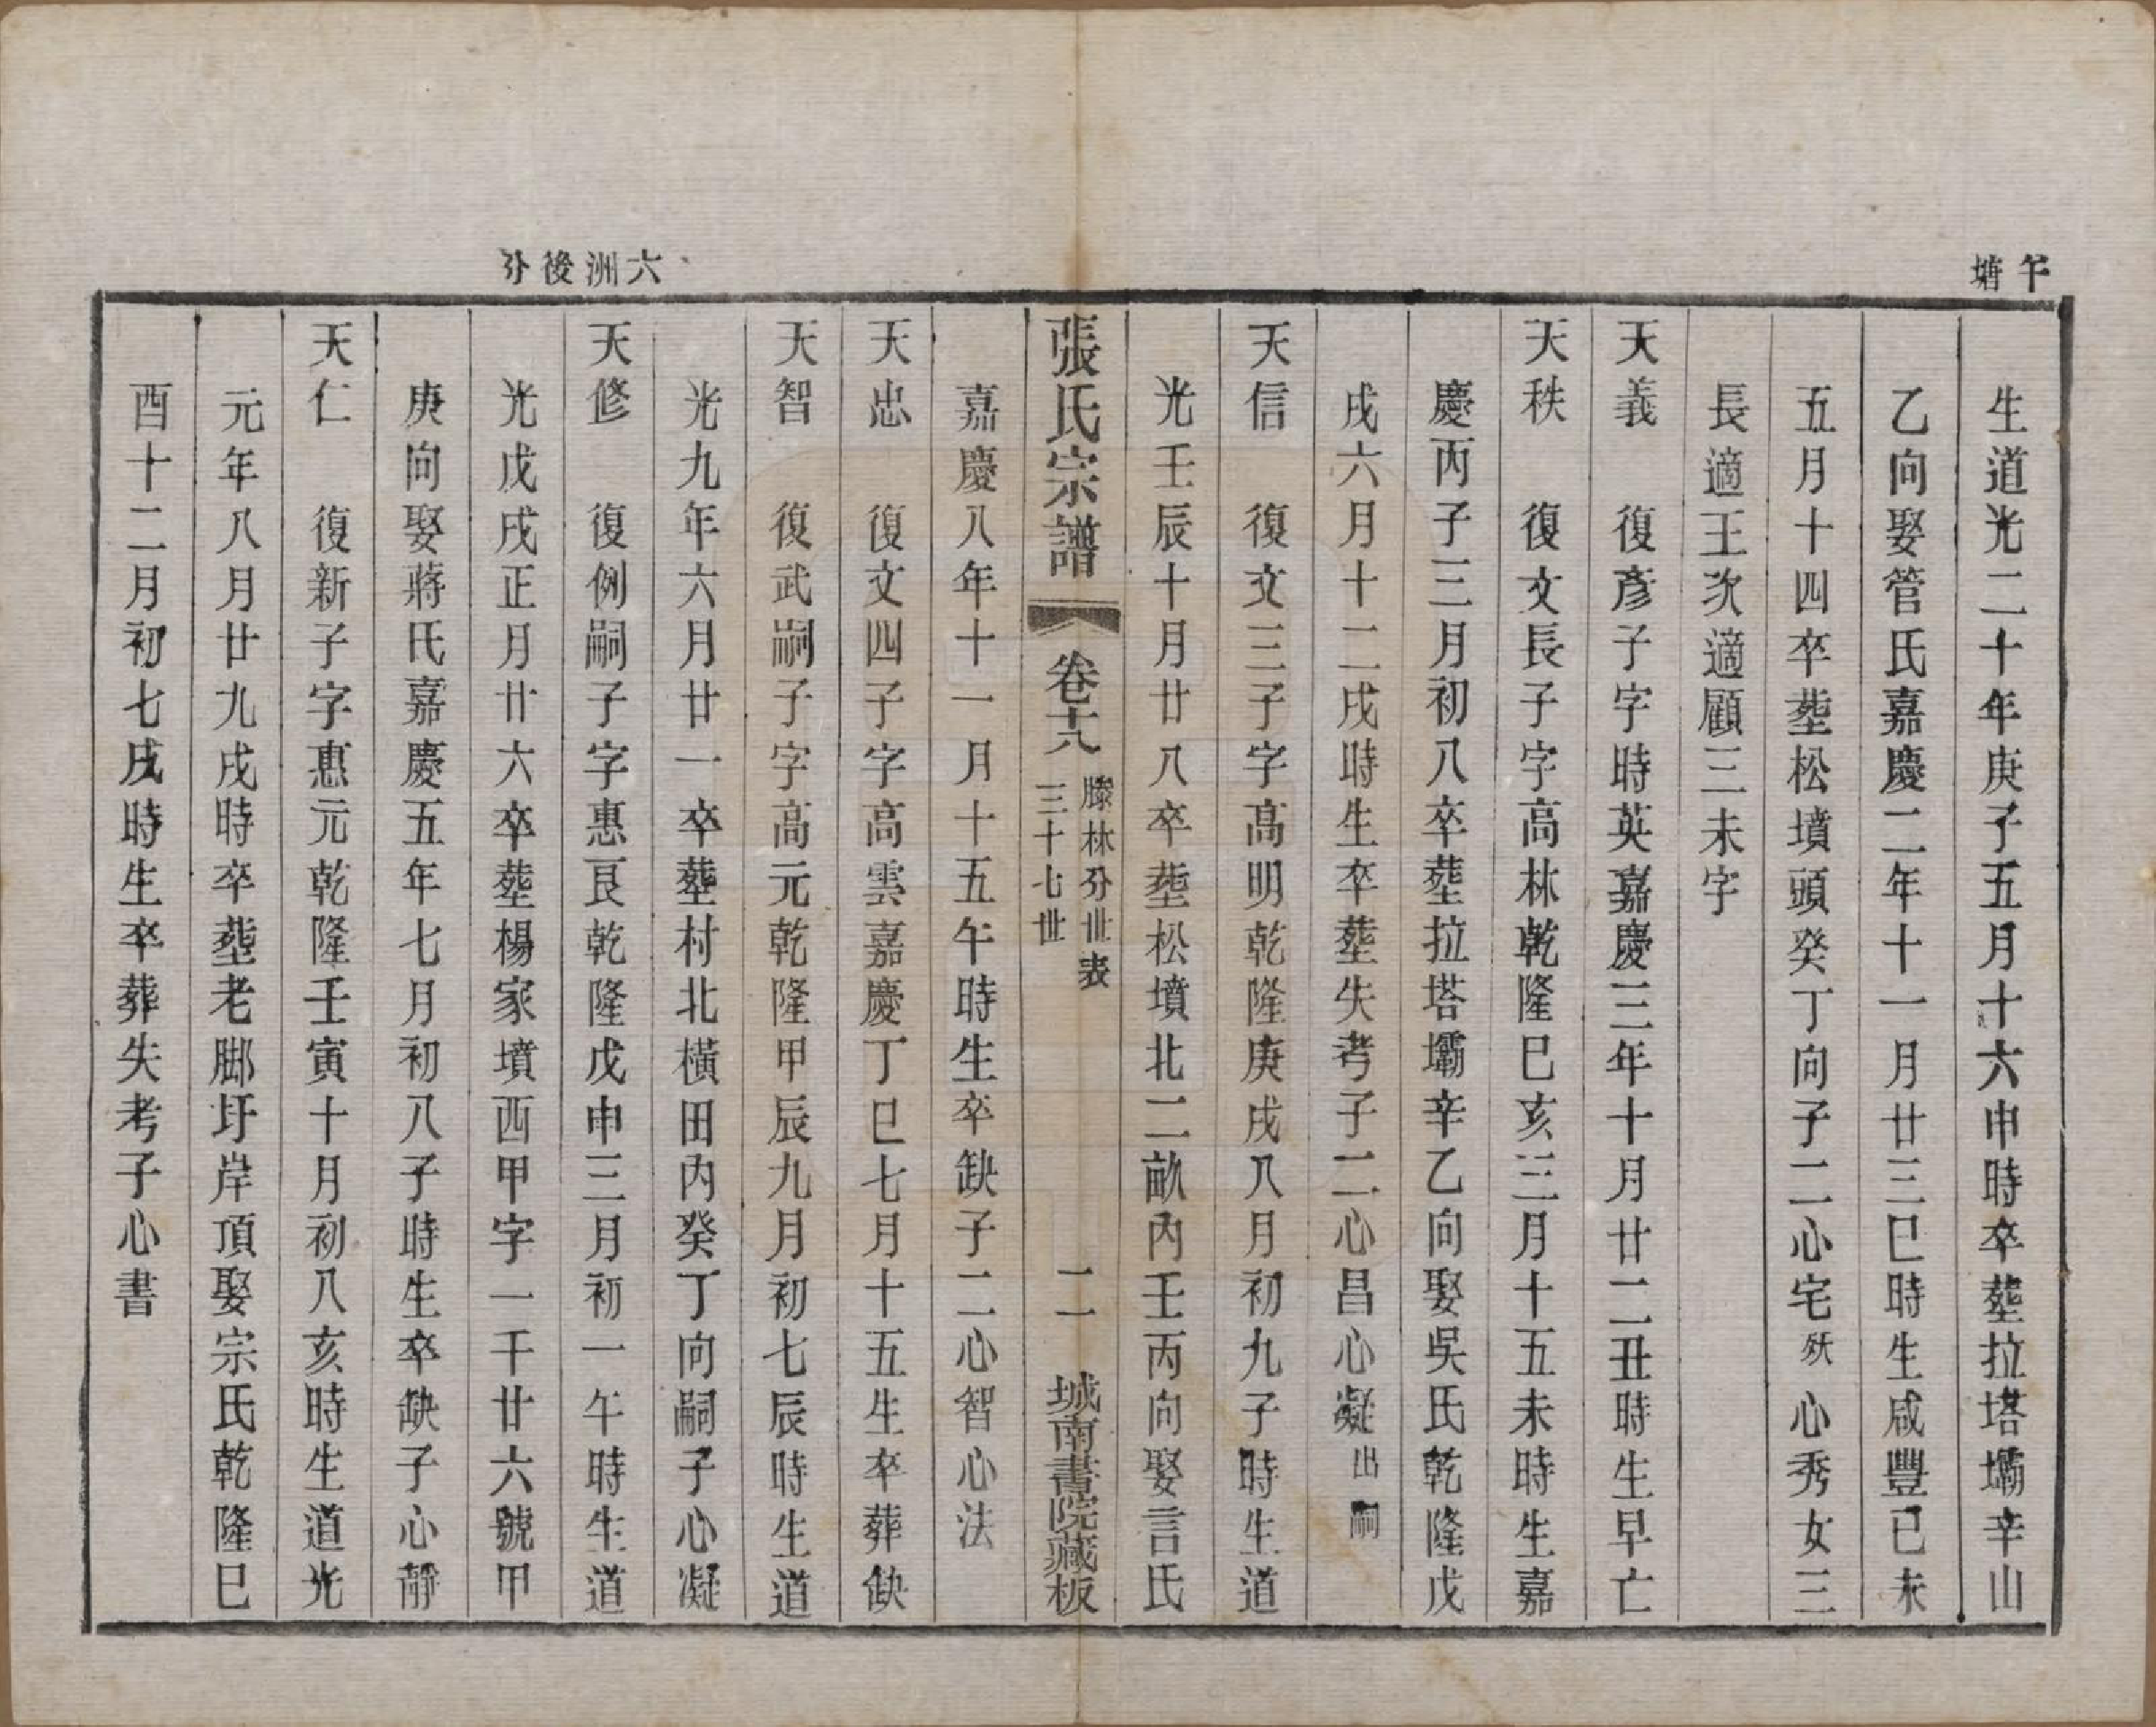 午塘
生道光二十年庚子五月十六申時卒塟拉塔壩辛山
乙向娶管氏嘉慶二年十一月廿三巳時生咸豐己未
五月十四卒塟松墳頭癸丁向子二心宅殀心秀女三
長適王次適顧三未字
天義　復彥子字時英嘉慶三年十月廿二丑時生早亡
天秩　復文長子字高林乾隆巳亥三月十五未時生嘉
慶丙子三月初八卒塟拉塔壩辛乙向娶吳氏乾隆戊
戌六月十二戌時生卒塟失考子二心昌心凝出嗣
天信　復文三子字高明乾隆庚戌八月初九子時生道
光壬辰十月廿八卒塟松墳北二畝內壬丙向娶言氏
張氏宗譜　卷十九　滕林分世表　三十七世　二　城南書院藏板
嘉慶八年十一月十五午時生卒缺子二心智心法
天忠　復文四子字高雲嘉慶丁巳七月十五生卒葬缺
六洲後分
天智　復武嗣子字高元乾隆甲辰九月初七辰時生道
光九年六月廿一卒塟村北橫田內癸丁向嗣子心凝
天修　復例嗣子字惠艮乾隆戊申三月初一午時生道
光戊戌正月廿六卒塟楊家墳西甲字一千廿六號甲
庚向娶蔣氏嘉慶五年七月初八子時生卒缺子心靜
天仁　復新子字惠元乾隆壬寅十月初八亥時生道光
元年八月廿九戌時卒塟老腳圩岸頂娶宗氏乾隆巳
酉十二月初七戌時生卒葬失考子心書